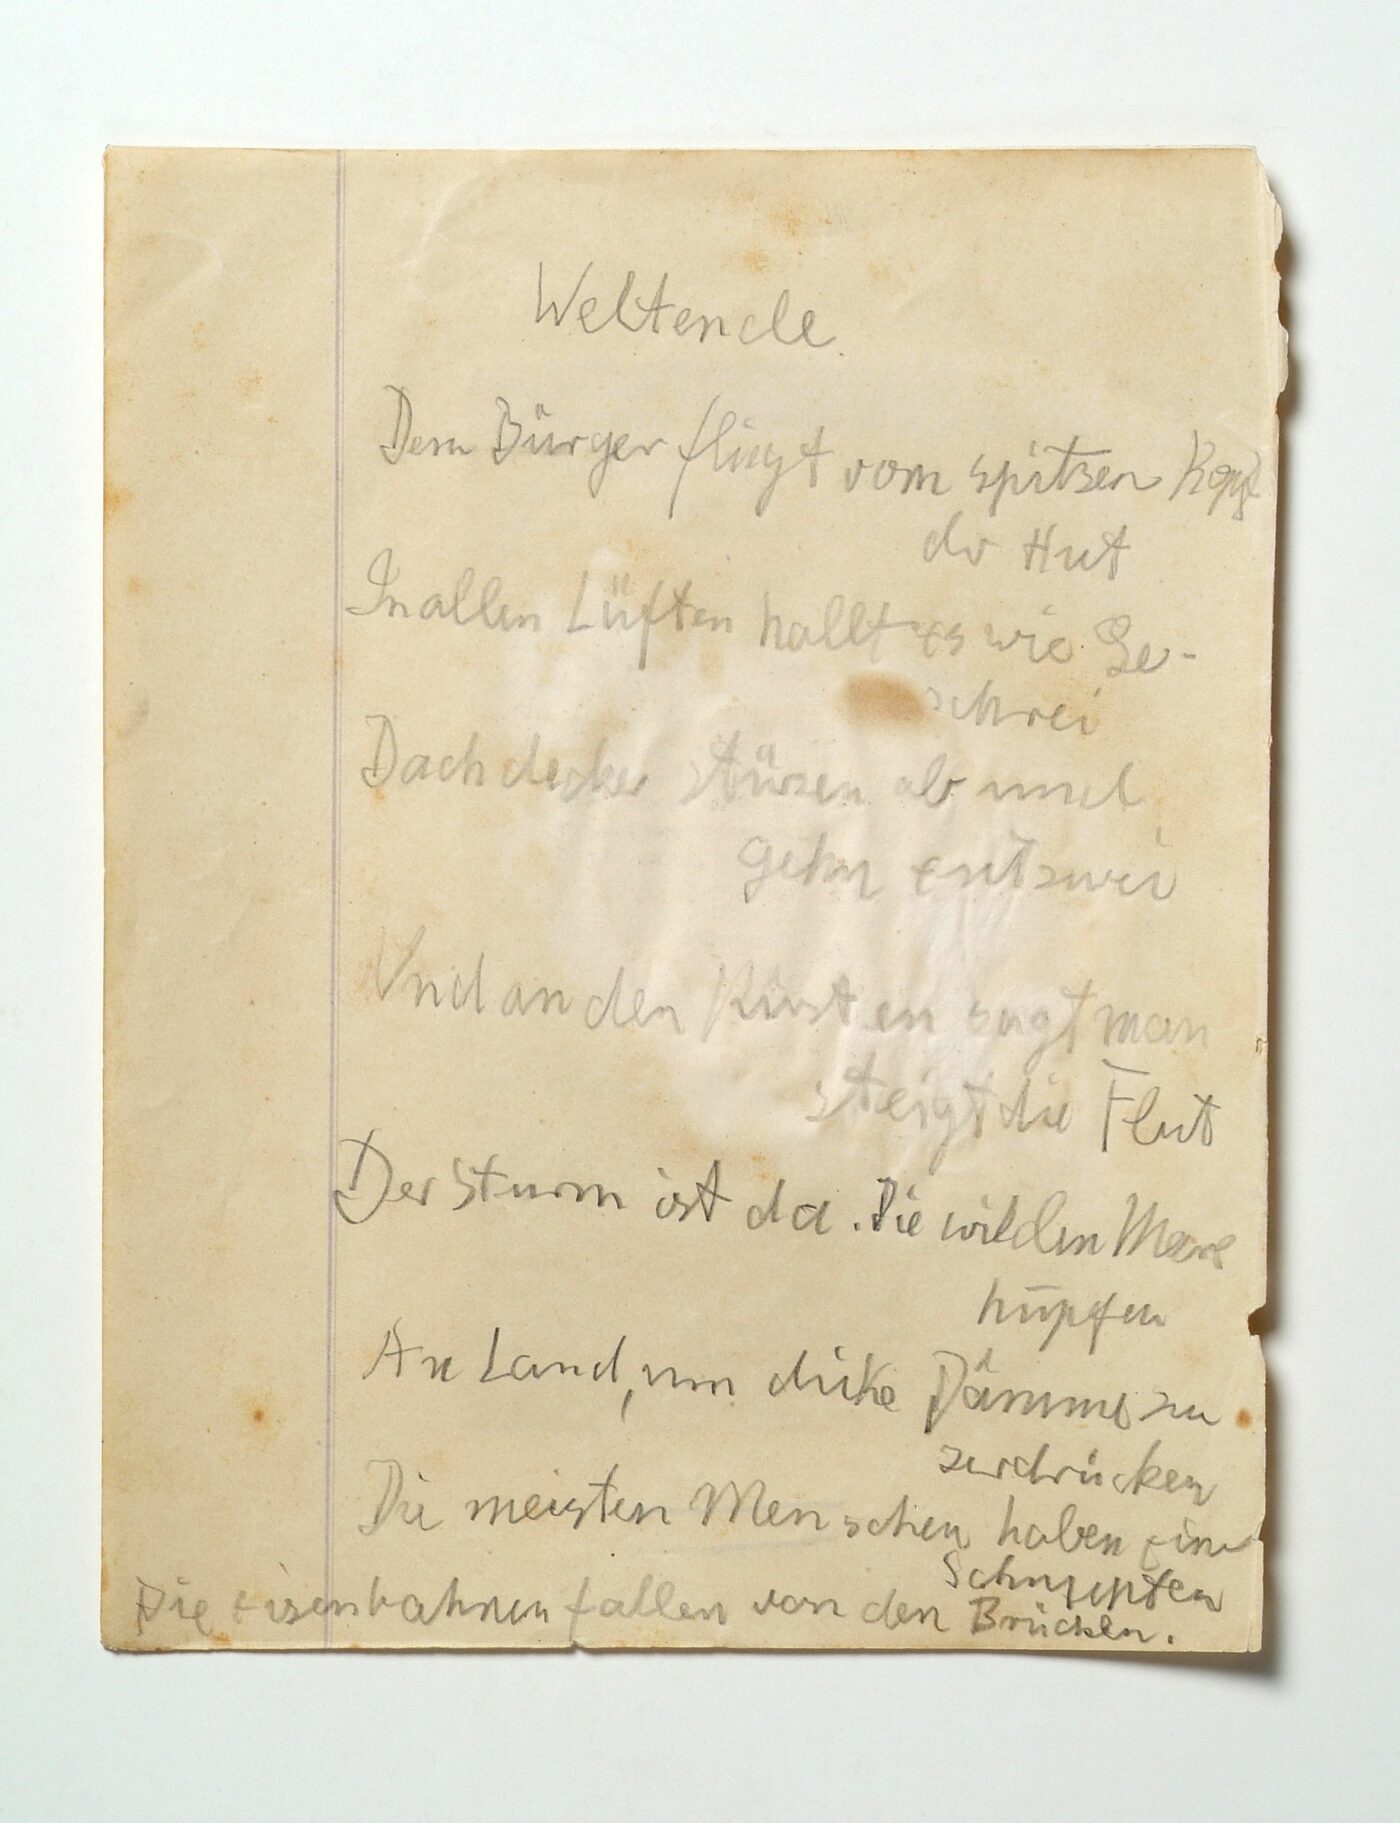 Weltende.
Dem Bürger fliegt vom spitzen Kopf
der Hut
In allen Lüften hallt es wie Ge-
schrei
Dachdecker stürzen ab und
gehn entzwei
Und an den Küsten sagt man
steigt die Flut
Der Sturm ist da. Die wilden Meere
hüpfen
An Land, um dicke Dämme zu
zerdrücken
Die meisten Menschen haben einen
Schnupfen
Die Eisenbahnen fallen von den Brücken.